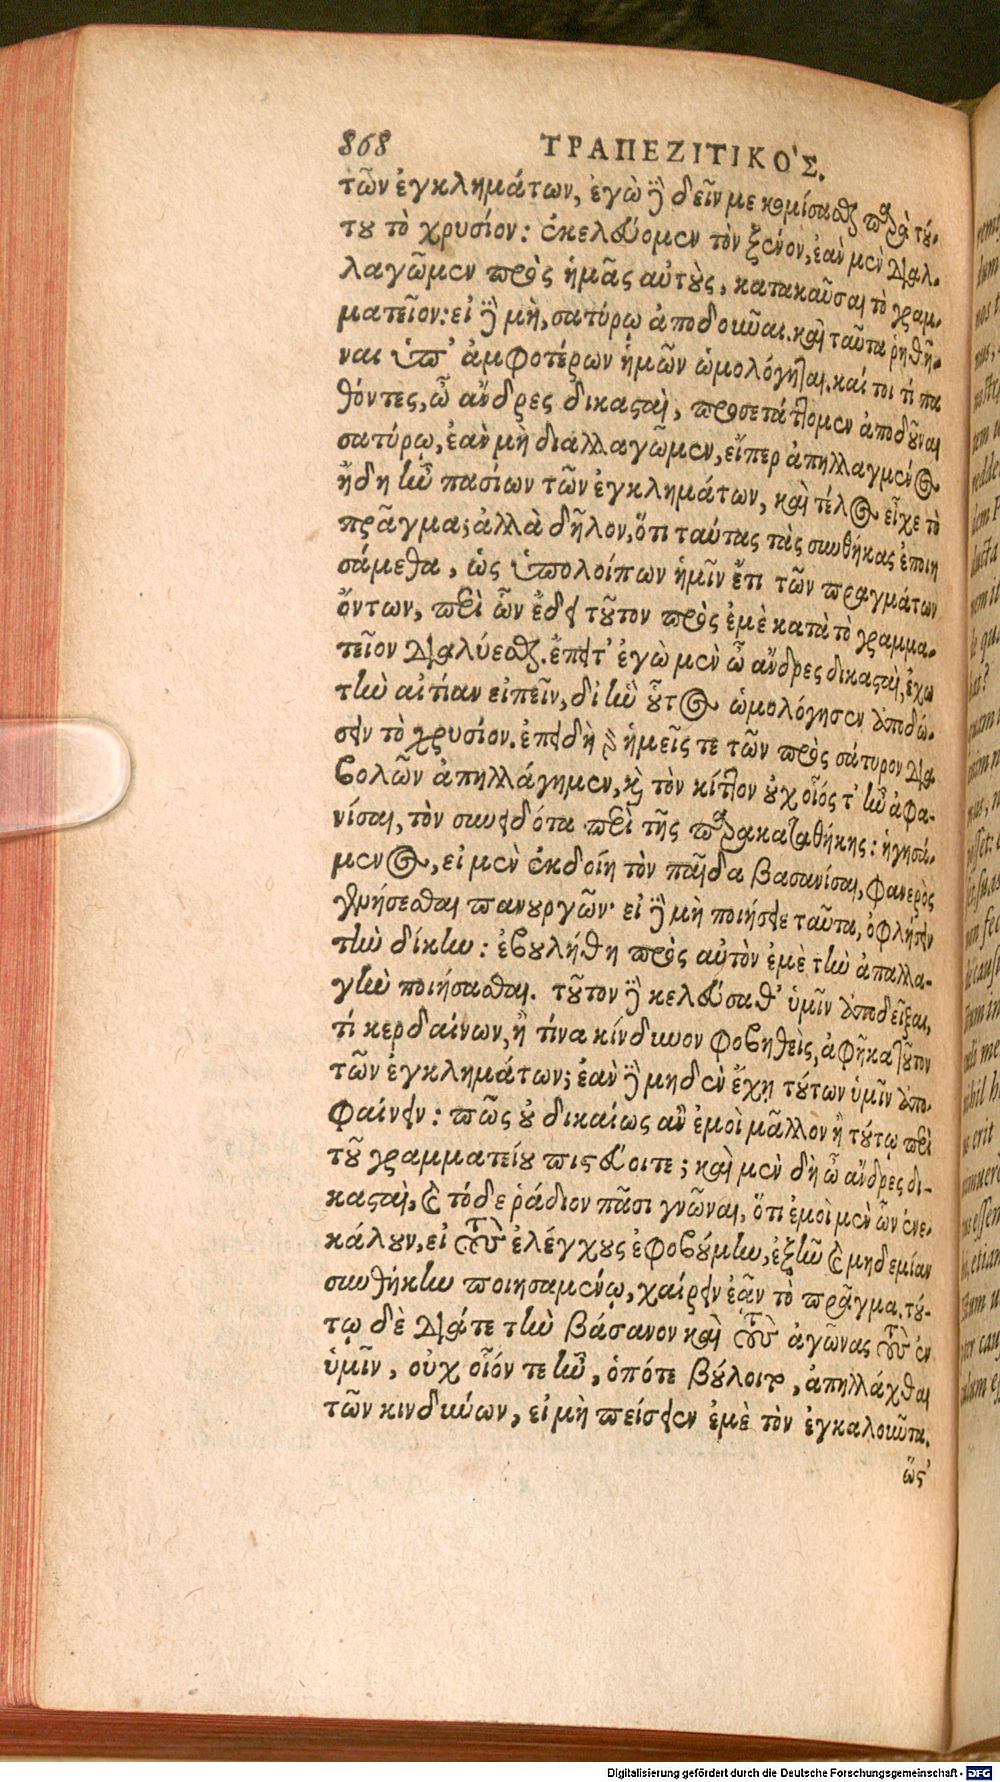 868 ΤΡΑΠΕΖΙΤΙΚΟ'Σ.
τῶν ἐγκλημάτων, ἐγὼ ἢ δεῖν με κομίσασθαι παρὰ τού-
του τὸ χρυσίον: ἐκελεύομεν τὸν ξένον, ἐὰν μὲν διαλ-
λαγῶμεν πρὸς ἡμᾶς αὐτοὺς, κατακαῦσαι τὸ γραμ-
ματεῖον: εἰ δὲ μὴ, σατύρῳ ἀποδοῦναι. καὶ ταῦτα ῥηθῆ-
ναι ὑπ' ἀμφοτέρων ἡμῶν ὡμολόγηται. καί τοι τί πα
θόντες, ὦ ἄνδρες δικασταὶ, προσετάττομεν ἀποδοῦναι
σατύρῳ, ἐὰν μὴ διαλλαγῶμεν, εἴπερ ἀπηλλαγμένος
ἤδη ἦν πασίων τῶν ἐγκλημάτων, καὶ τέλος εἶχε τὸ
πρᾶγμα; ἀλλὰ δῆλον, ὅτι ταύτας τὰς συνθήκας ἐποιη
σάμεθα, ὡς ὑπολοίπων ἡμῖν ἔτι τῶν πραγμάτων
ὄντων, περὶ ὧν ἔδει τοῦτον πρὸς ἐμὲ κατὰ τὸ γραμμα-
τεῖον διαλύεσθαι. ἔπειτ' ἐγὼ μὲν ὦ ἄνδρες δικασταὶ, ἔχω
τὴν αἰτίαν εἰπεῖν, δι' ἣν οὗτος ὡμολόγησεν ἀποδώ-
σειν τὸ χρυσίον. ἐπειδὴ γὰρ ἡμεῖς τε τῶν πρὸς σάτυρον δια
βολῶν ἀπηλλάγημεν, καὶ τὸν κίττον οὐχ οἷός τ' ἦν ἀφα-
νίσαι, τὸν συνειδότα περὶ τῆς παρακαταθήκης: ἡγησά-
μενος, εἰ μὲν ἐκδοίη τὸν παῖδα βασανίσαι, φανερὸς
γενήσεσθαι πανουργῶν· εἰ δὲ μὴ ποιήσειε ταῦτα, ὀφλήσειν
τὴν δίκην: ἐβουλήθη πρὸς αὐτὸν ἐμὲ τὴν ἀπαλλα-
γὴν ποιήσασθαι. τοῦτον δὲ κελεύσαθ' ὑμῖν ἀποδεῖξαι,
τί κερδαίνων, ἢ τίνα κίνδυνον φοβηθεὶς, ἀφῆκα τοῦτον
τῶν ἐγκλημάτων; ἐὰν δὲ μηδὲν ἔχῃ τούτων ὑμῖν ἀπο-
φαίνειν: πῶς οὐ δικαίως ἂν ἐμοὶ μᾶλλον ἢ τούτῳ περὶ
τοῦ γραμματείου πιστεύοιτε; καὶ μὲν δὴ ὦ ἄνδρες δι-
κασταὶ, καὶ τόδε ῥάδιον πᾶσι γνῶναι, ὅτι ἐμοὶ μὲν ὧν ἐνε-
κάλουν, εἰ τοὺς ἐλέγχους ἐφοβούμην, ἐξῆν καὶ μηδεμίαν
συνθήκην ποιησαμένῳ, χαίρειν ἐᾶν τὸ πρᾶγμα. τού-
τῳ δὲ διάτε τὴν βάσανον καὶ τοὺς ἀγῶνας τοὺς ἐν
ὑμῖν, οὐχ οἷόν τε ἦν, ὁπότε βούλοιτο, ἀπηλλάχθαι
τῶν κινδύνων, εἰ μὴ πείσειεν ἐμὲ τὸν ἐγκαλοῦντα.
ὥστ'
Digitalisierung gefördert durch die Deutsche Forschungsgemeinschaft - DFG